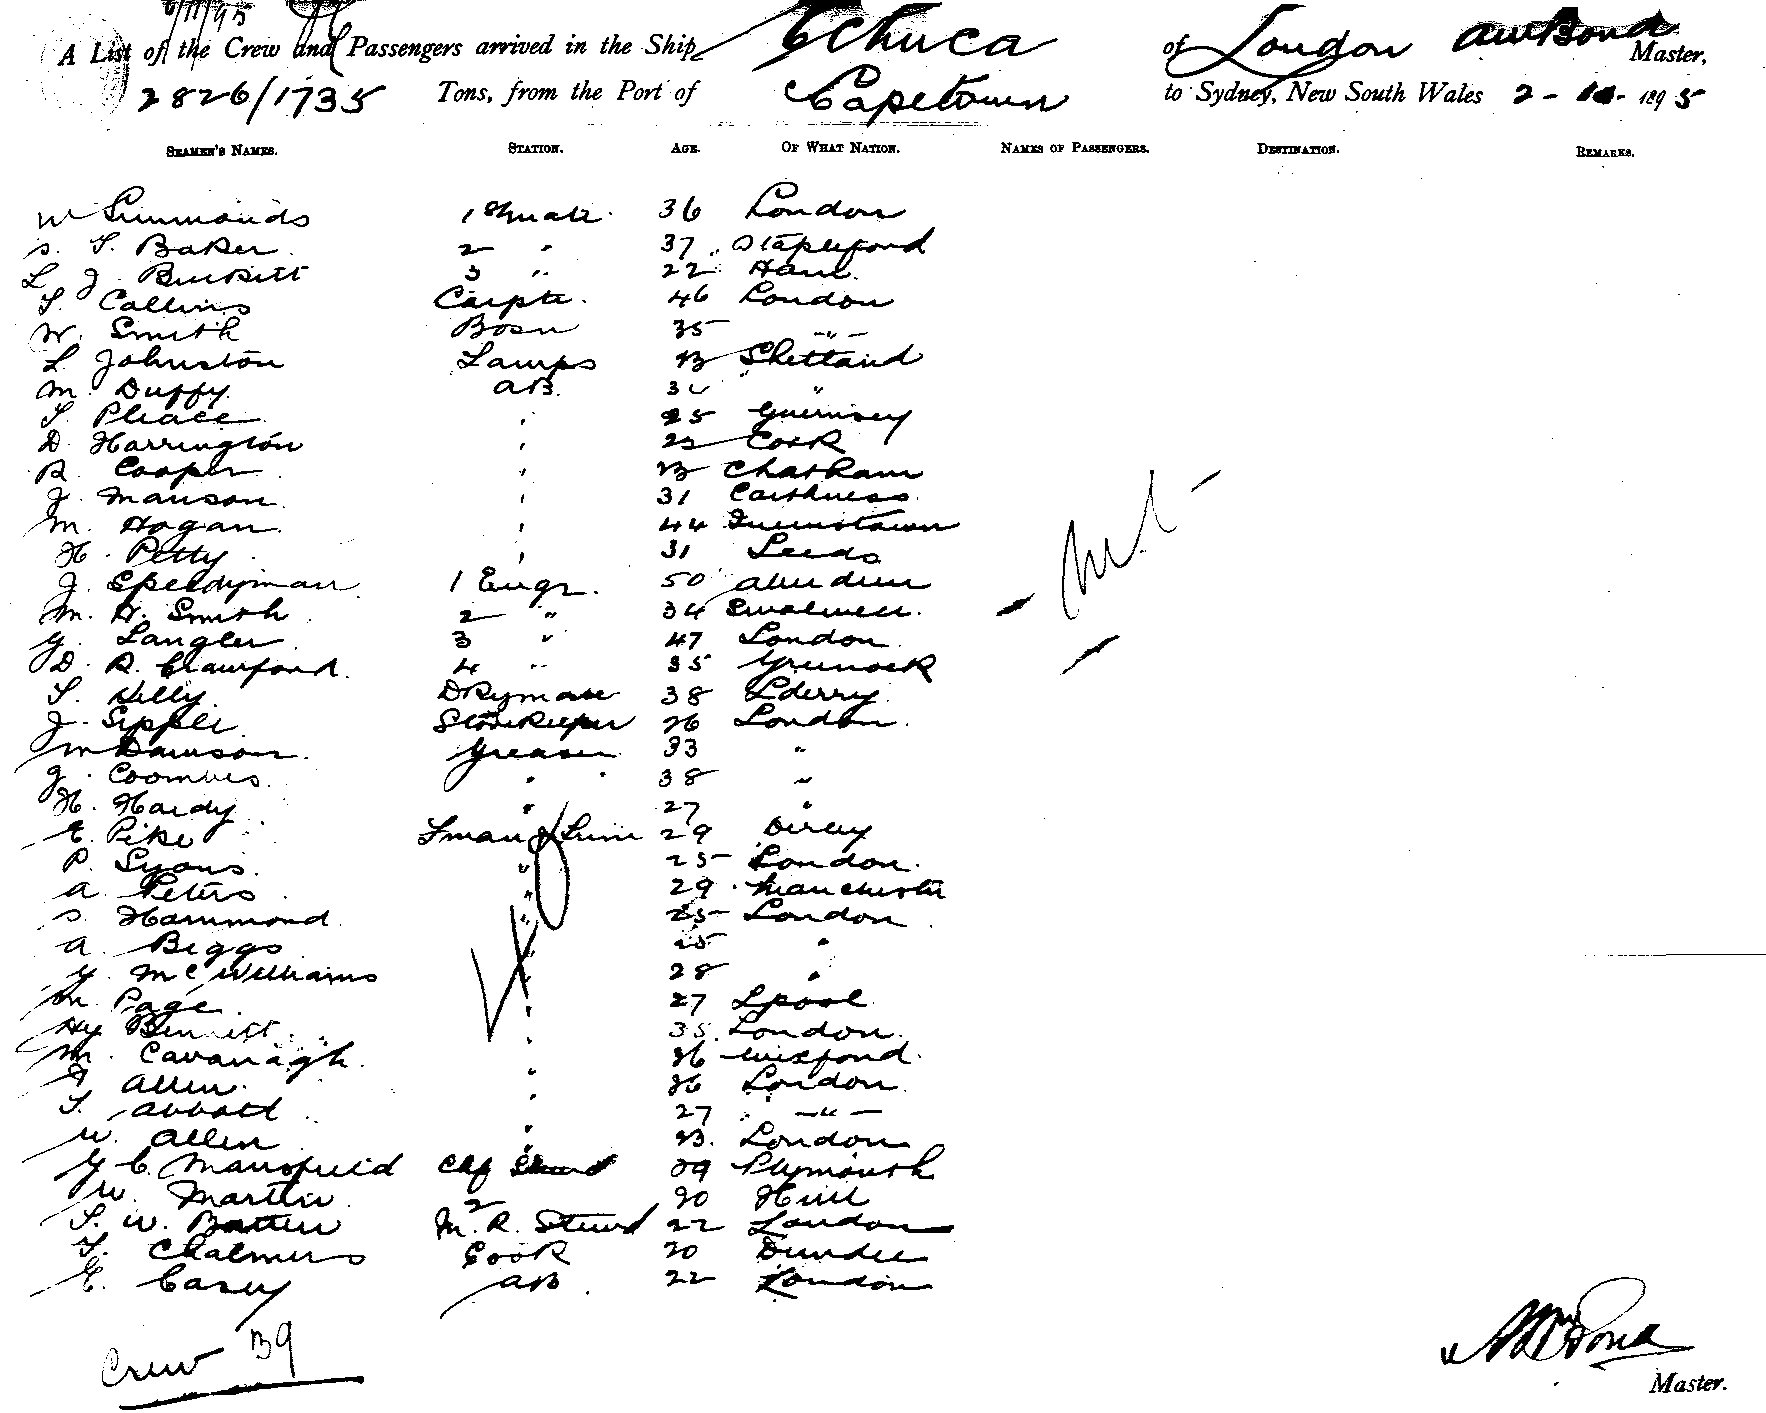 6/11/95
A List of the Crew and Passengers arrived in the Ship Echuca of London Master,
2826/1735 Tons, from the Port of Capetown to Sydney, New South Wales 2 - - 1895
SEAMEN'S NAMES. STATION. AGE. OF WHAT NATION. NAMES OF PASSENGERS. DESTINATION. REMARKS.
W Simmonds 1st mate 36 London
S. T. Baker 2 " 37 Stapleford
L J. Burkitt 3 " 22
T. Collins Carptr. 46 London
W. Smith Bosn 35 -"-
L Johnston Lamps Shetland
M. Duffy. AB. "
T. 25 Guernsey
D Harrington Cork
R. Cooper Chatham
J. Manson 31 Caithness
M. Hogan 44 Queenstown
H. Petty 31 Leeds
J. Speedyman 1 Engr. 50 Aberdeen
M. H. Smith 2 " 34 Swalwell
G. Langler 3 " 47 London
D. R. Crawford. 4 " 35 Greenock
T. Kelly Dkyman 38 Lderry
J. Storekeeper 26 London
M Dawson Greaser 33 "
G. Coombes " 38 "
H. Hardy " 27 "
E. Pike Fman & Trim 29 Derby
P. Lyons " 25 London
A. Peters " 29 Manchester
S. Hammond " 25 London
A. Biggs " 25 "
G. McWilliams " 28 "
M Page " 27 Lpool
Hy Bennett " 35 London
M. Cavanagh " 36 Wexford
Allen " 36 London
T. Abbott " 27 -"-
W. Allen " London
G C. Mansfield Chf Stewd 39 Plymouth
W. Martin 2 Hull
T. W. M. R. Stewd 22 London
T. Chalmers Cook Dundee
E. Casey AB 22 London
Crew 39
Master.